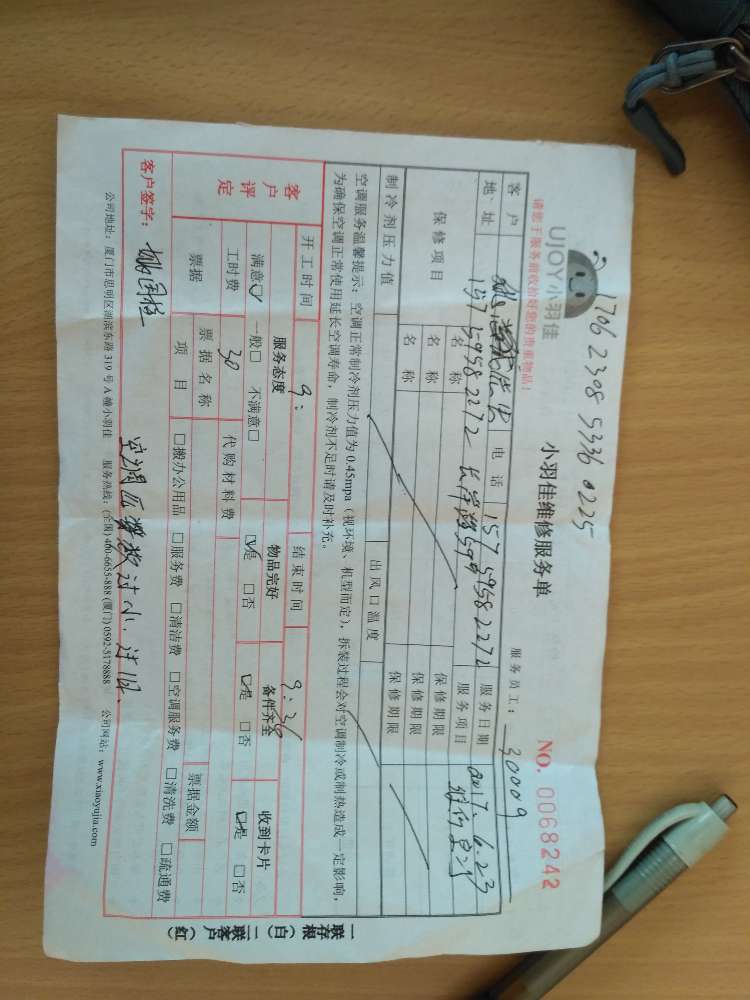 1706 2308 5336 0225
UJOY小羽佳
请您于服务前收拾好您的贵重物品!
小羽佳维修服务单
NO. 0068242
服务员工: 30009
客户 电话 15759582272 服务日期 2017.6.23
地址 15759582272 服务项目
保修项目 名称 保修期限
名称 保修期限
名称 保修期限
制冷剂压力值 出风口温度
空调服务温馨提示:空调正常制冷剂压力值为0.45mpa(视环境、机型而定),拆装过程会对空调制冷或制热造成一定影响,
为确保空调正常使用延长空调寿命,制冷剂不足时请及时补充。
客户评定
开工时间 9: 结束时间 9:30
服务态度 物品完好 备件齐全 收到卡片
满意☑ 一般□ 不满意□ ☑是 □否 ☑是 □否 ☑是 □否
工时费 30 代购材料费
票据 票据名称 票据金额
项目 □搬办公用品 □服务费 □清洁费 □空调服务费 □清洗费 □疏通费
客户签字:
空调 过小
公司地址:厦门市思明区湖滨东路319号A幢小羽佳 服务热线:(全国)400-6655-888 (厦门)0592-5178888 公司网站:www.xiaoyujia.com
一联存根(白) 二联客户(红)